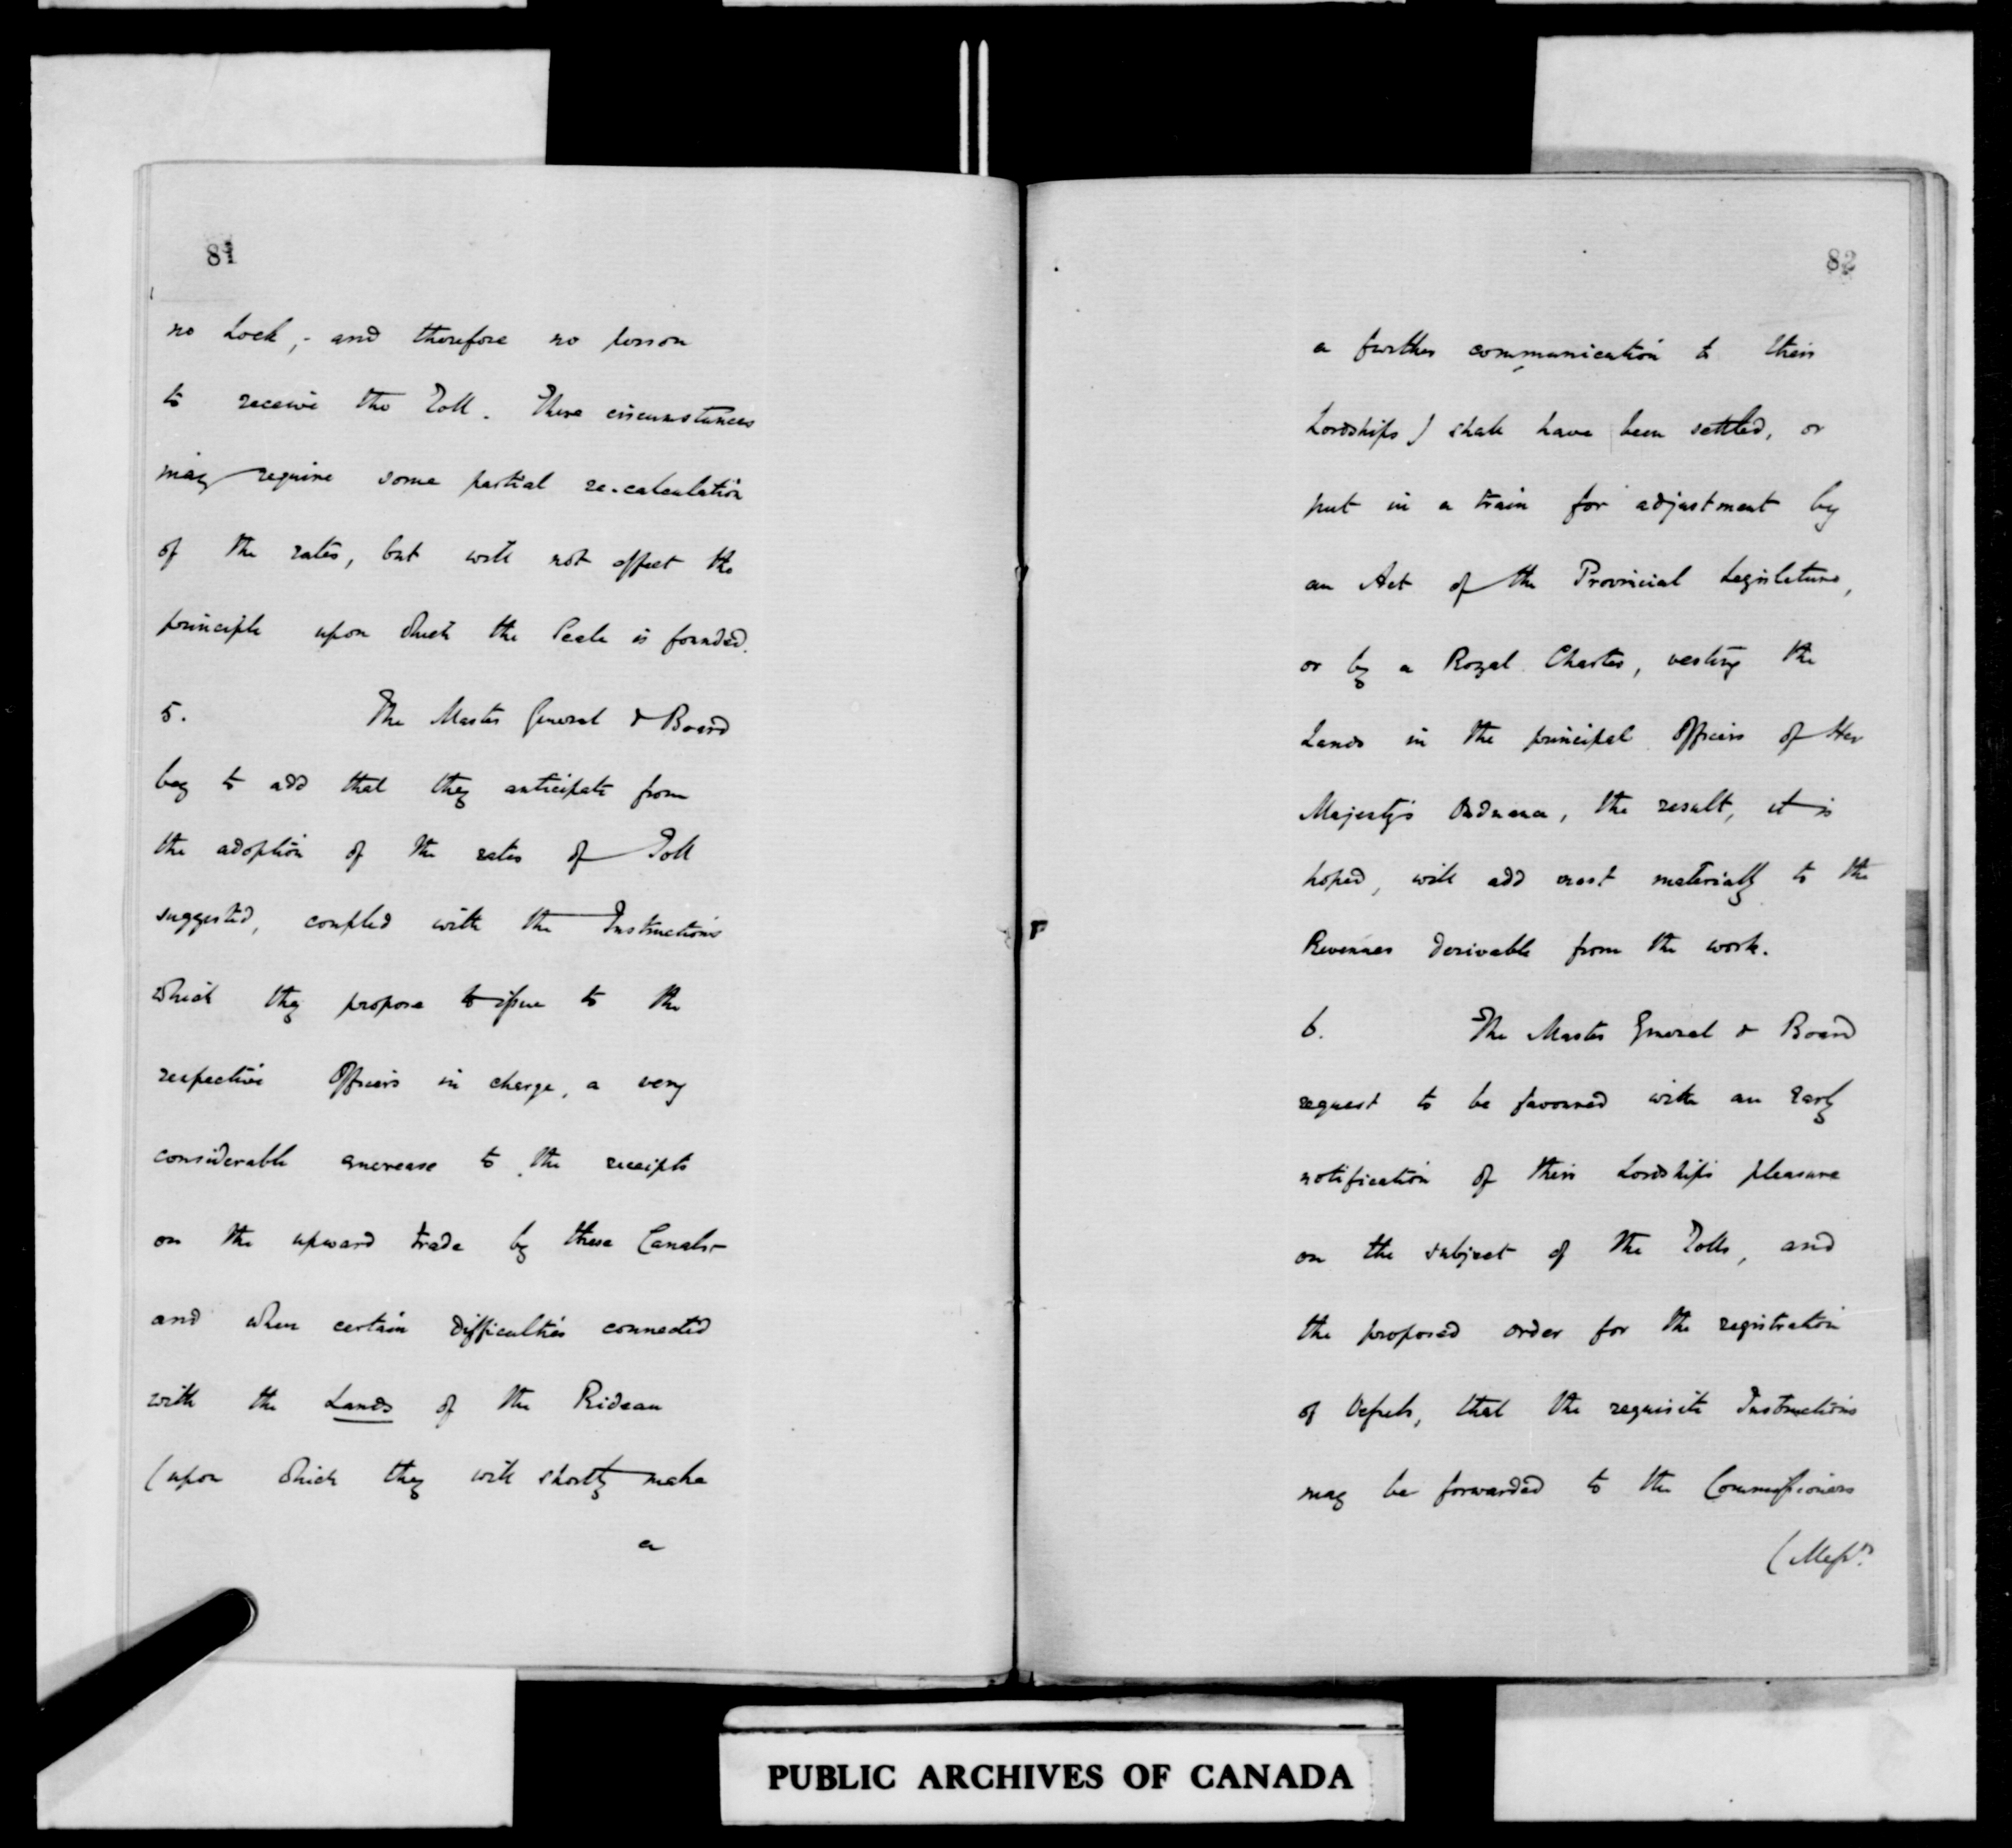 81
no Lock, - and therefore no person
to receive the Toll. These circumstances
may require some partial re-calculation
of the rates, but will not affect the
principle upon which the Scale is founded.
5. The Master General & Board
beg to add that they anticipate from
the adoption of the rates of Toll
suggested, coupled with the Instructions
which they propose to issue to the
respective Officers in charge, a very
considerable increase to the receipts
on the upward trade by these Canals-
and when certain difficulties connected
with the Lands of the Rideau
(upon which they will shortly make
a
82
a further communication to their
Lordships) shall have been settled, or
put in a train for adjustment by
an Act of the Provincial Legislature,
or by a Royal Charter, vesting the
Lands in the principal Officers of Her
Majesty's Ordnance, the result, it is
hoped, will add most materially to the
Revenues derivable from the work.
6. The Master General & Board
request to be favoured with an early
notification of their Lordships pleasure
on the subject of the Tolls, and
the proposed order for the registration
of Vessels, that the requisite Instructions
may be forwarded to the Commissioners
(Messrs.
PUBLIC ARCHIVES OF CANADA